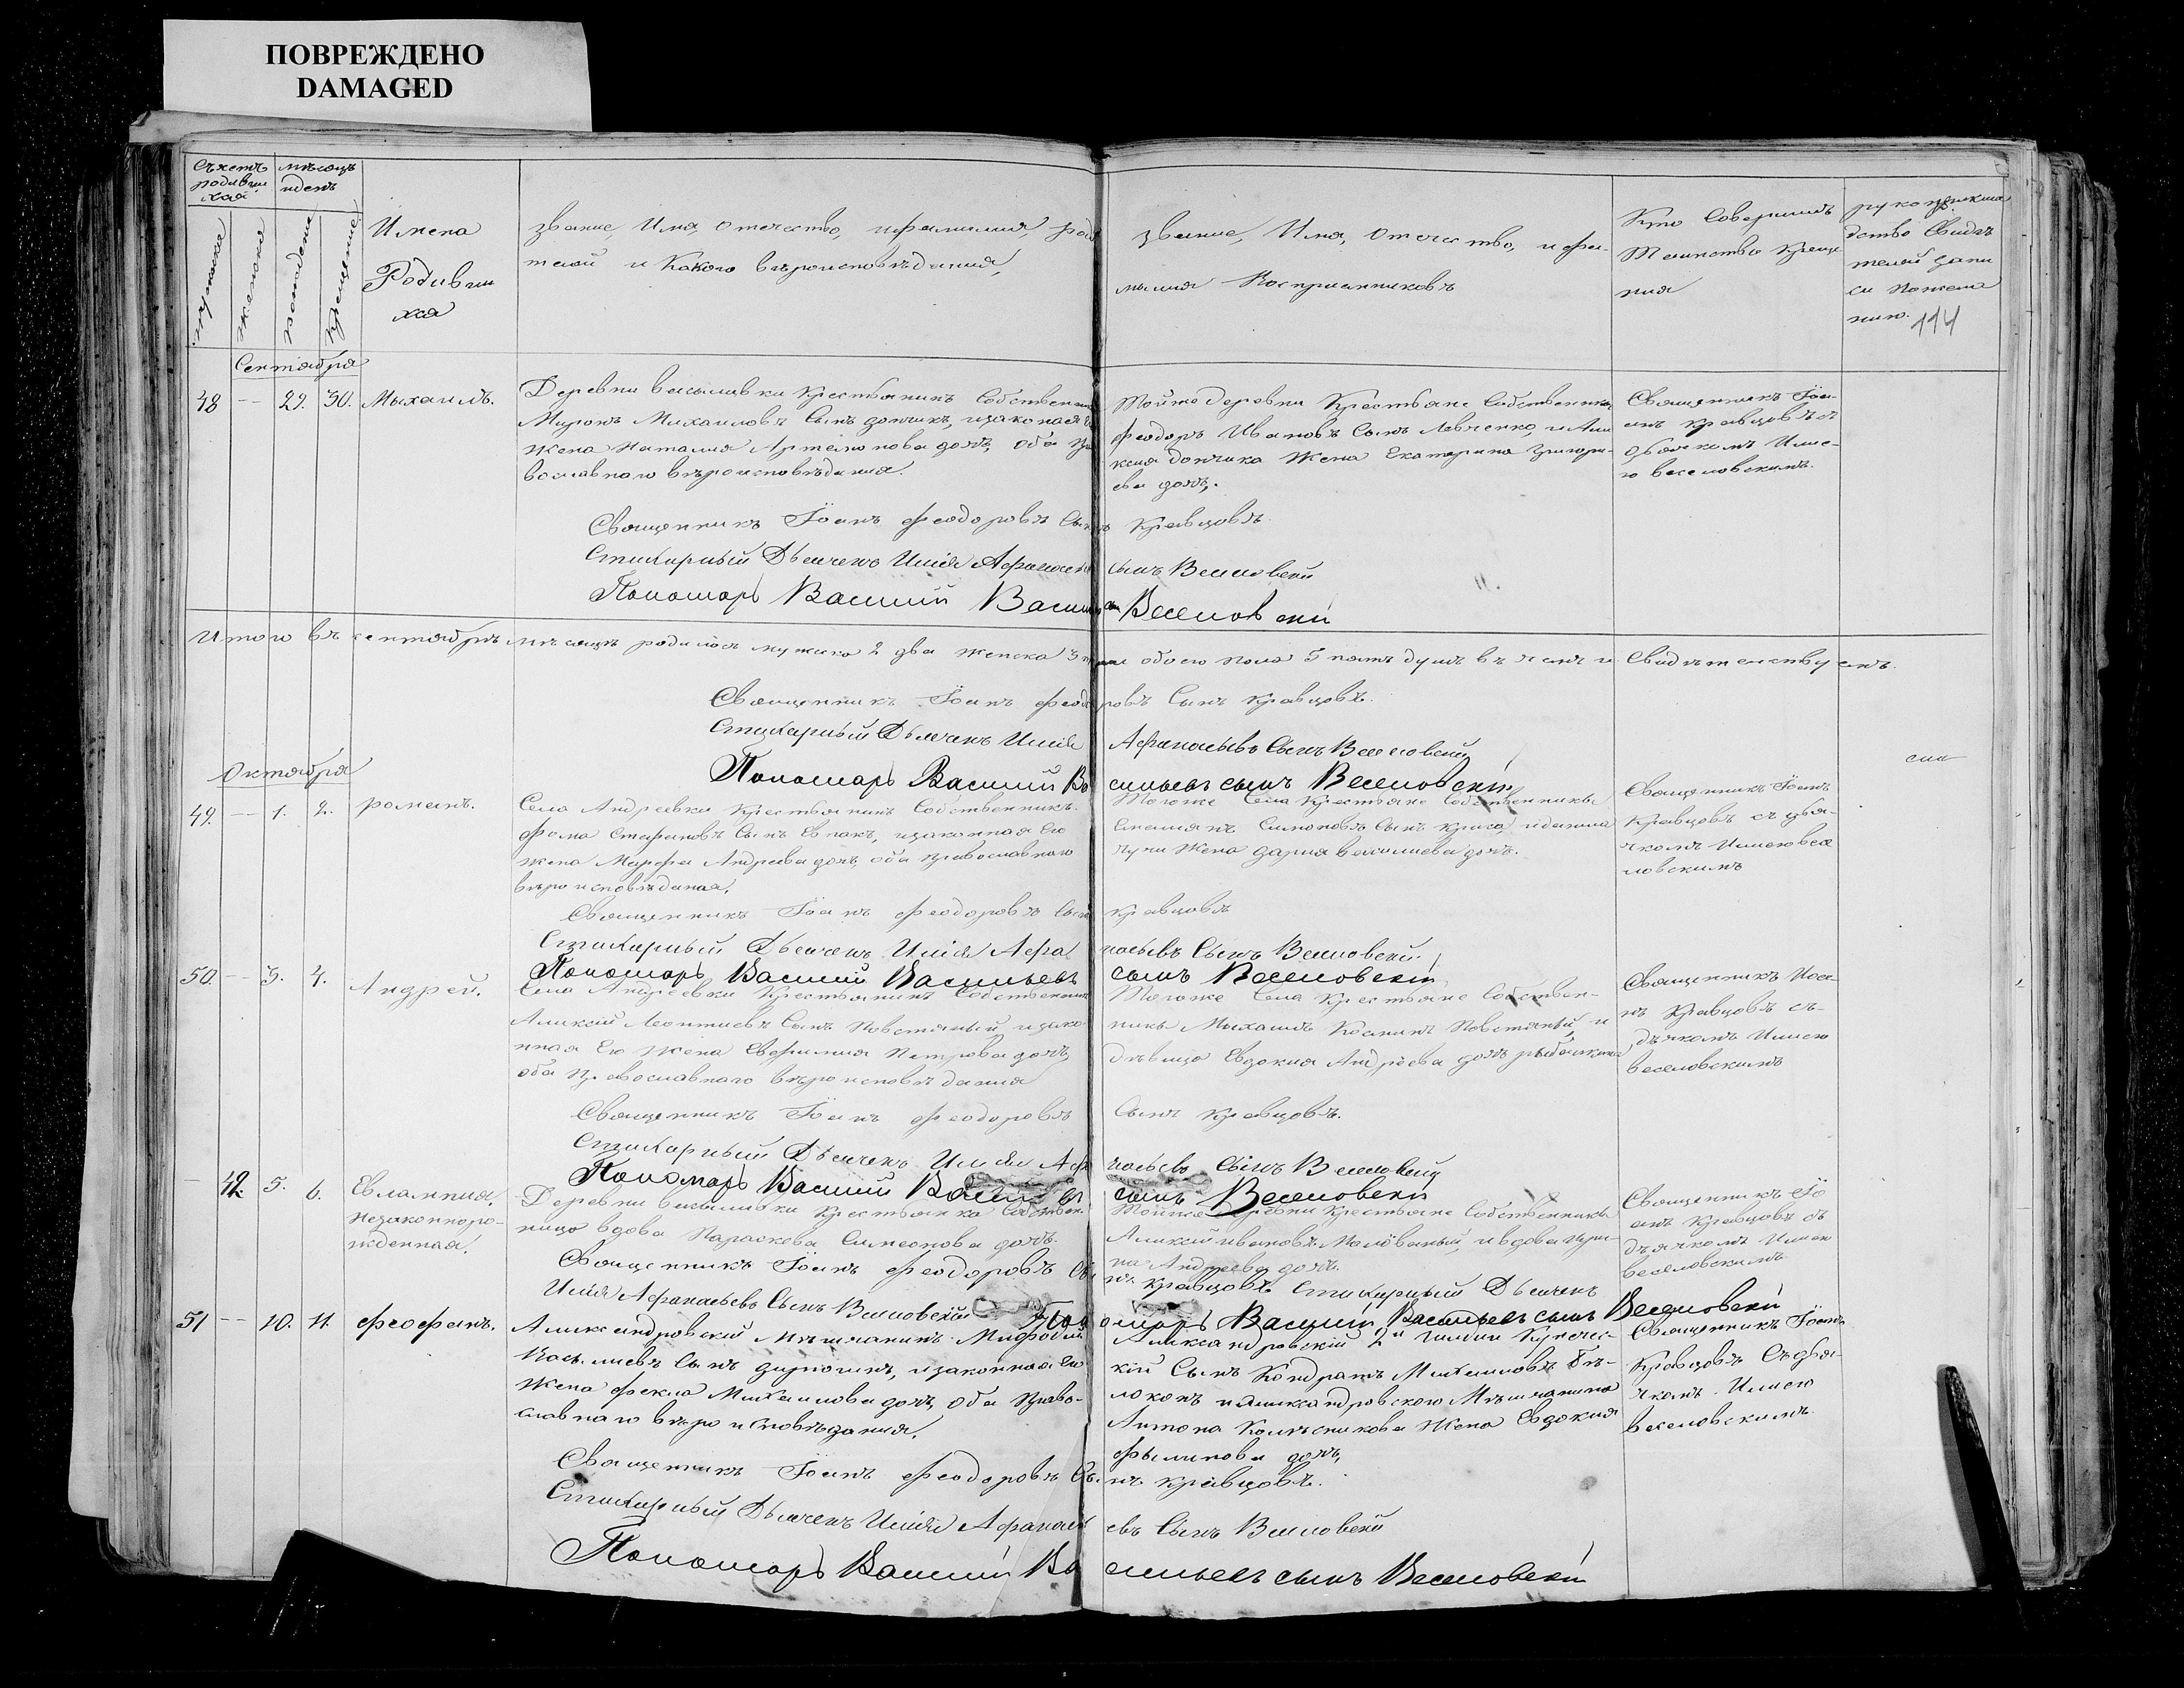 ПОВРЕЖДЕНО
DAMAGED
Съчетъ
родивши
хся
мѣсяцъ
и день
мужска
женска
рожденія
крещенія
Имена
Родивши
хся
Званіе, Имя, Отечество, и фамилия, род
телей и Какого вѣроисповѣданія,
Званіе, Имя, Отечество, и фа-
милия Воспріемниковъ
Кто Совершилъ
Таинство Креще
ния
рукоприкла
дство Свидѣ
телей запи
си по жела
нию.
114
Сентября
48 — 29. 30. Мыхаилъ.
Деревни Васылевки Крестьянинъ Собственник
Миронъ Михаиловъ Сынъ Дончикъ, и законная е
жена Наталия Артемонова дочь, оба пра
вославнаго вѣроисповѣдания.
Тойже деревни Крестьяне Собственники
Феодоръ Ивановъ Сынъ Левченко, и Али
ксия Дончика Жена Екатерина Григори-
ева дочь.
Священникъ Іоа-
нъ Кравцовъ съ
дьячкомъ Илие-
ю Веселовскимъ.
Священникъ Іоанъ Феодоровъ Сынъ Кравцовъ.
Стихарный Дьячекъ Илія Афанасьев сынъ Веселовскій
Пономарь Василий Васильев сын Веселовский
Итого въ сентябрѣ мѣсяцѣ родилось мужска 2 два женска 3 три обоего пола 5 пять душъ въ чемъ и Свидѣтелствуемъ.
Священникъ Іоанъ Феодоровъ Сынъ Кравцовъ.
Стихарный Дьячекъ Илія Афанасьевъ Сынъ Веселовский
Пономарь Василий Васильевъ сынъ Веселовский
Октября
49. — 1. 2. романъ.
Села Андреевки Крестьянинъ Собственникъ
Фома Стефановъ Сынъ Евпакъ, и законная Его
жена Марфа Андреева дочь, оба православнаго
вѣроисповѣдания.
Тогоже Села Крестьяне Собственники
Емелиянъ Симоновъ Сынъ
жена Дария Василиева дочь.
Священникъ Іоанъ
Кравцовъ съ дья-
чкомъ Илиею Весе
ловскимъ
Священникъ Іоанъ Феодоровъ Сынъ Кравцовъ
Стихарный Дьячекъ Илія Афанасьевъ Сынъ Веселовский
Пономарь Василий Васильевъ сынъ Веселовский
50. — 3. 4. Андрей.
Села Андреевки Крестьянинъ Собственник
Аликсій Леонтиевъ Сынъ Повстяный, и зако-
нная Его жена Евфимия Петрова дочь,
оба Православнаго вѣроисповѣдания
Тогоже Села Крестьяне Собствен-
ники Мыхаилъ Косминъ Повстяный, и
дѣвица Евдокия Андреева дочь рыбалкина
Священникъ Иоа-
нъ Кравцовъ съ
дьячкомъ Илиею
Веселовскимъ
Священникъ Іоанъ Феодоровъ Сынъ Кравцовъ.
Стихарный Дьячекъ Илия Афанасьевъ Сынъ Веселовский
Пономарь Василий Василь сынъ Веселовский
— 42 5. 6. Евлампия,
незаконноро-
жденная.
Деревни Васыливки Крестьянка Собствен-
ница вдова Параскева Симеонова дочь.
Тойже Деревни Крестьяне Собственники
Аликсій Ивановъ Малёваный, и вдова Ири-
на Андреева дочь.
Священникъ Іо
анъ Кравцовъ съ
дьячкомъ Илиею
Веселовскимъ
Священникъ Іоанъ Феодоровъ Сынъ Кравцовъ Стихарный Дьячекъ
Илія Афанасьевъ Сынъ Веселовскій Пономарь Василий Васильевъ сынъ Веселовский
51 — 10. 11. Феофанъ.
Александровский Мѣщанинъ Мефодий
Васылиевъ Сынъ и законная Его
Жена Фекла Михаилова дочь, оба Право-
славнаго вѣроисповѣдания.
Александровский 2й гилдии Купечес-
кій Сынъ Кондратъ Михаиловъ Бѣ-
локонъ и Александровскаго Мѣщанина
Антона Колѣсникова Жена Евдокия
Фылипова дочь,
Священникъ Іоанъ
Кравцовъ Съ дья-
чкомъ Илиею
Веселовскимъ
Священникъ Іоанъ Феодоровъ Сынъ Кравцовъ.
Стихарный Дьячекъ Илія Афанасьевъ Сынъ Веселовский
Пономарь Василий Васильевъ сынъ Веселовский